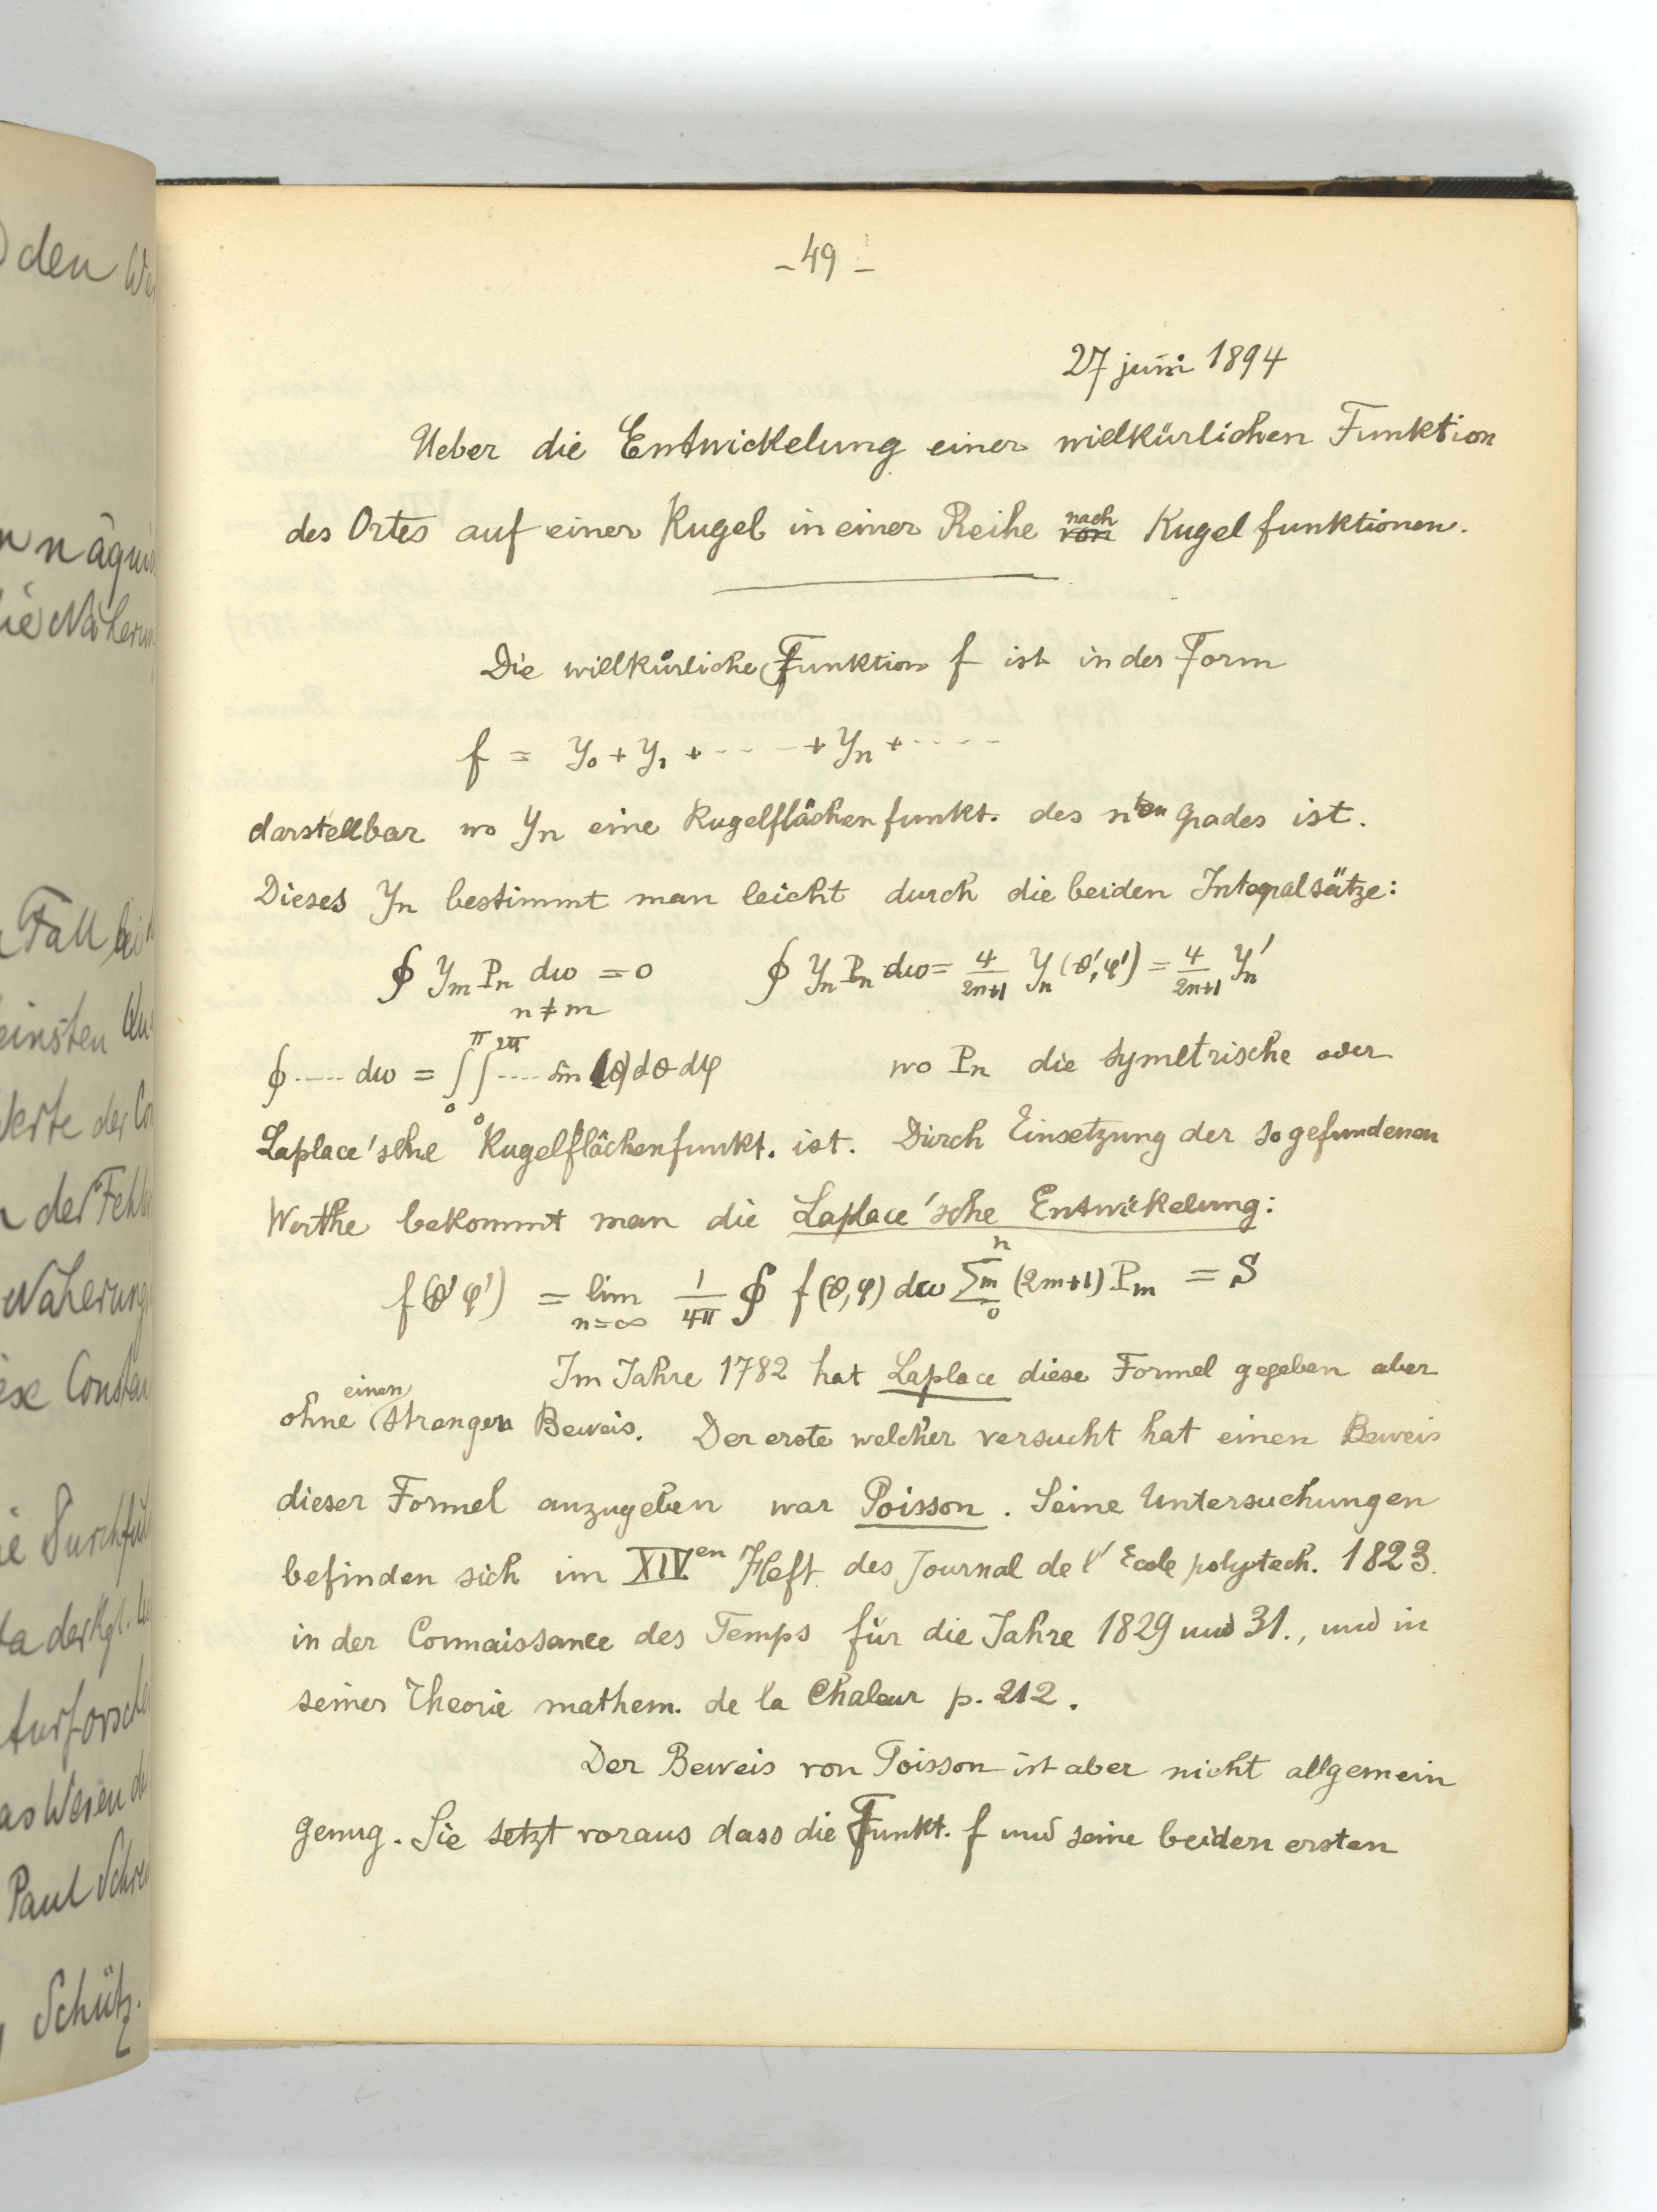 - 49 -
27 juni 1894
Ueber die Entwickelung einer willkürlichen Funktion
des Ortes auf einer Kugel in einer Reihe nach von Kugelfunktionen.
Die willkürliche Funktion f ist in der Form
f = Y₀ + Y₁ + ···· + Yₙ + ····
darstellbar wo Yₙ eine Kugelflächenfunkt. des nten Grades ist.
Dieses Yₙ bestimmt man leicht durch die beiden Integralsätze:
∮ Yₘ Pₙ dω = 0   n ≠ m   ∮ Yₙ Pₙ dω = 4/(2n+1) Yₙ(θ',φ') = 4/(2n+1) Yₙ'
∮ ····· dω = ∫₀^π ∫₀^2π ···· sin θ dθ dφ   wo Pₙ die symetrische oder
Laplace'sche Kugelflächenfunkt. ist. Durch Einsetzung der so gefundenen
Werthe bekommt man die Laplace'sche Entwickelung:
f(θ'φ') = lim n=∞ 1/4π ∮ f(θ,φ) dω ∑ₘ₀ⁿ (2m+1) Pₘ = S
Im Jahre 1782 hat Laplace diese Formel gegeben aber
ohne einen strengen Beweis. Der erste welcher versucht hat einen Beweis
dieser Formel anzugeben war Poisson. Seine Untersuchungen
befinden sich im XIVen Heft des Journal de l'Ecole polytech. 1823.
in der Connaissance des Temps für die Jahre 1829 und 31., und in
seiner Theorie mathem. de la Chaleur p. 212.
Der Beweis von Poisson ist aber nicht allgemein
genug. Sie setzt voraus dass die Funkt. f und seine beiden ersten
den
Fall
Paul
Schütz.